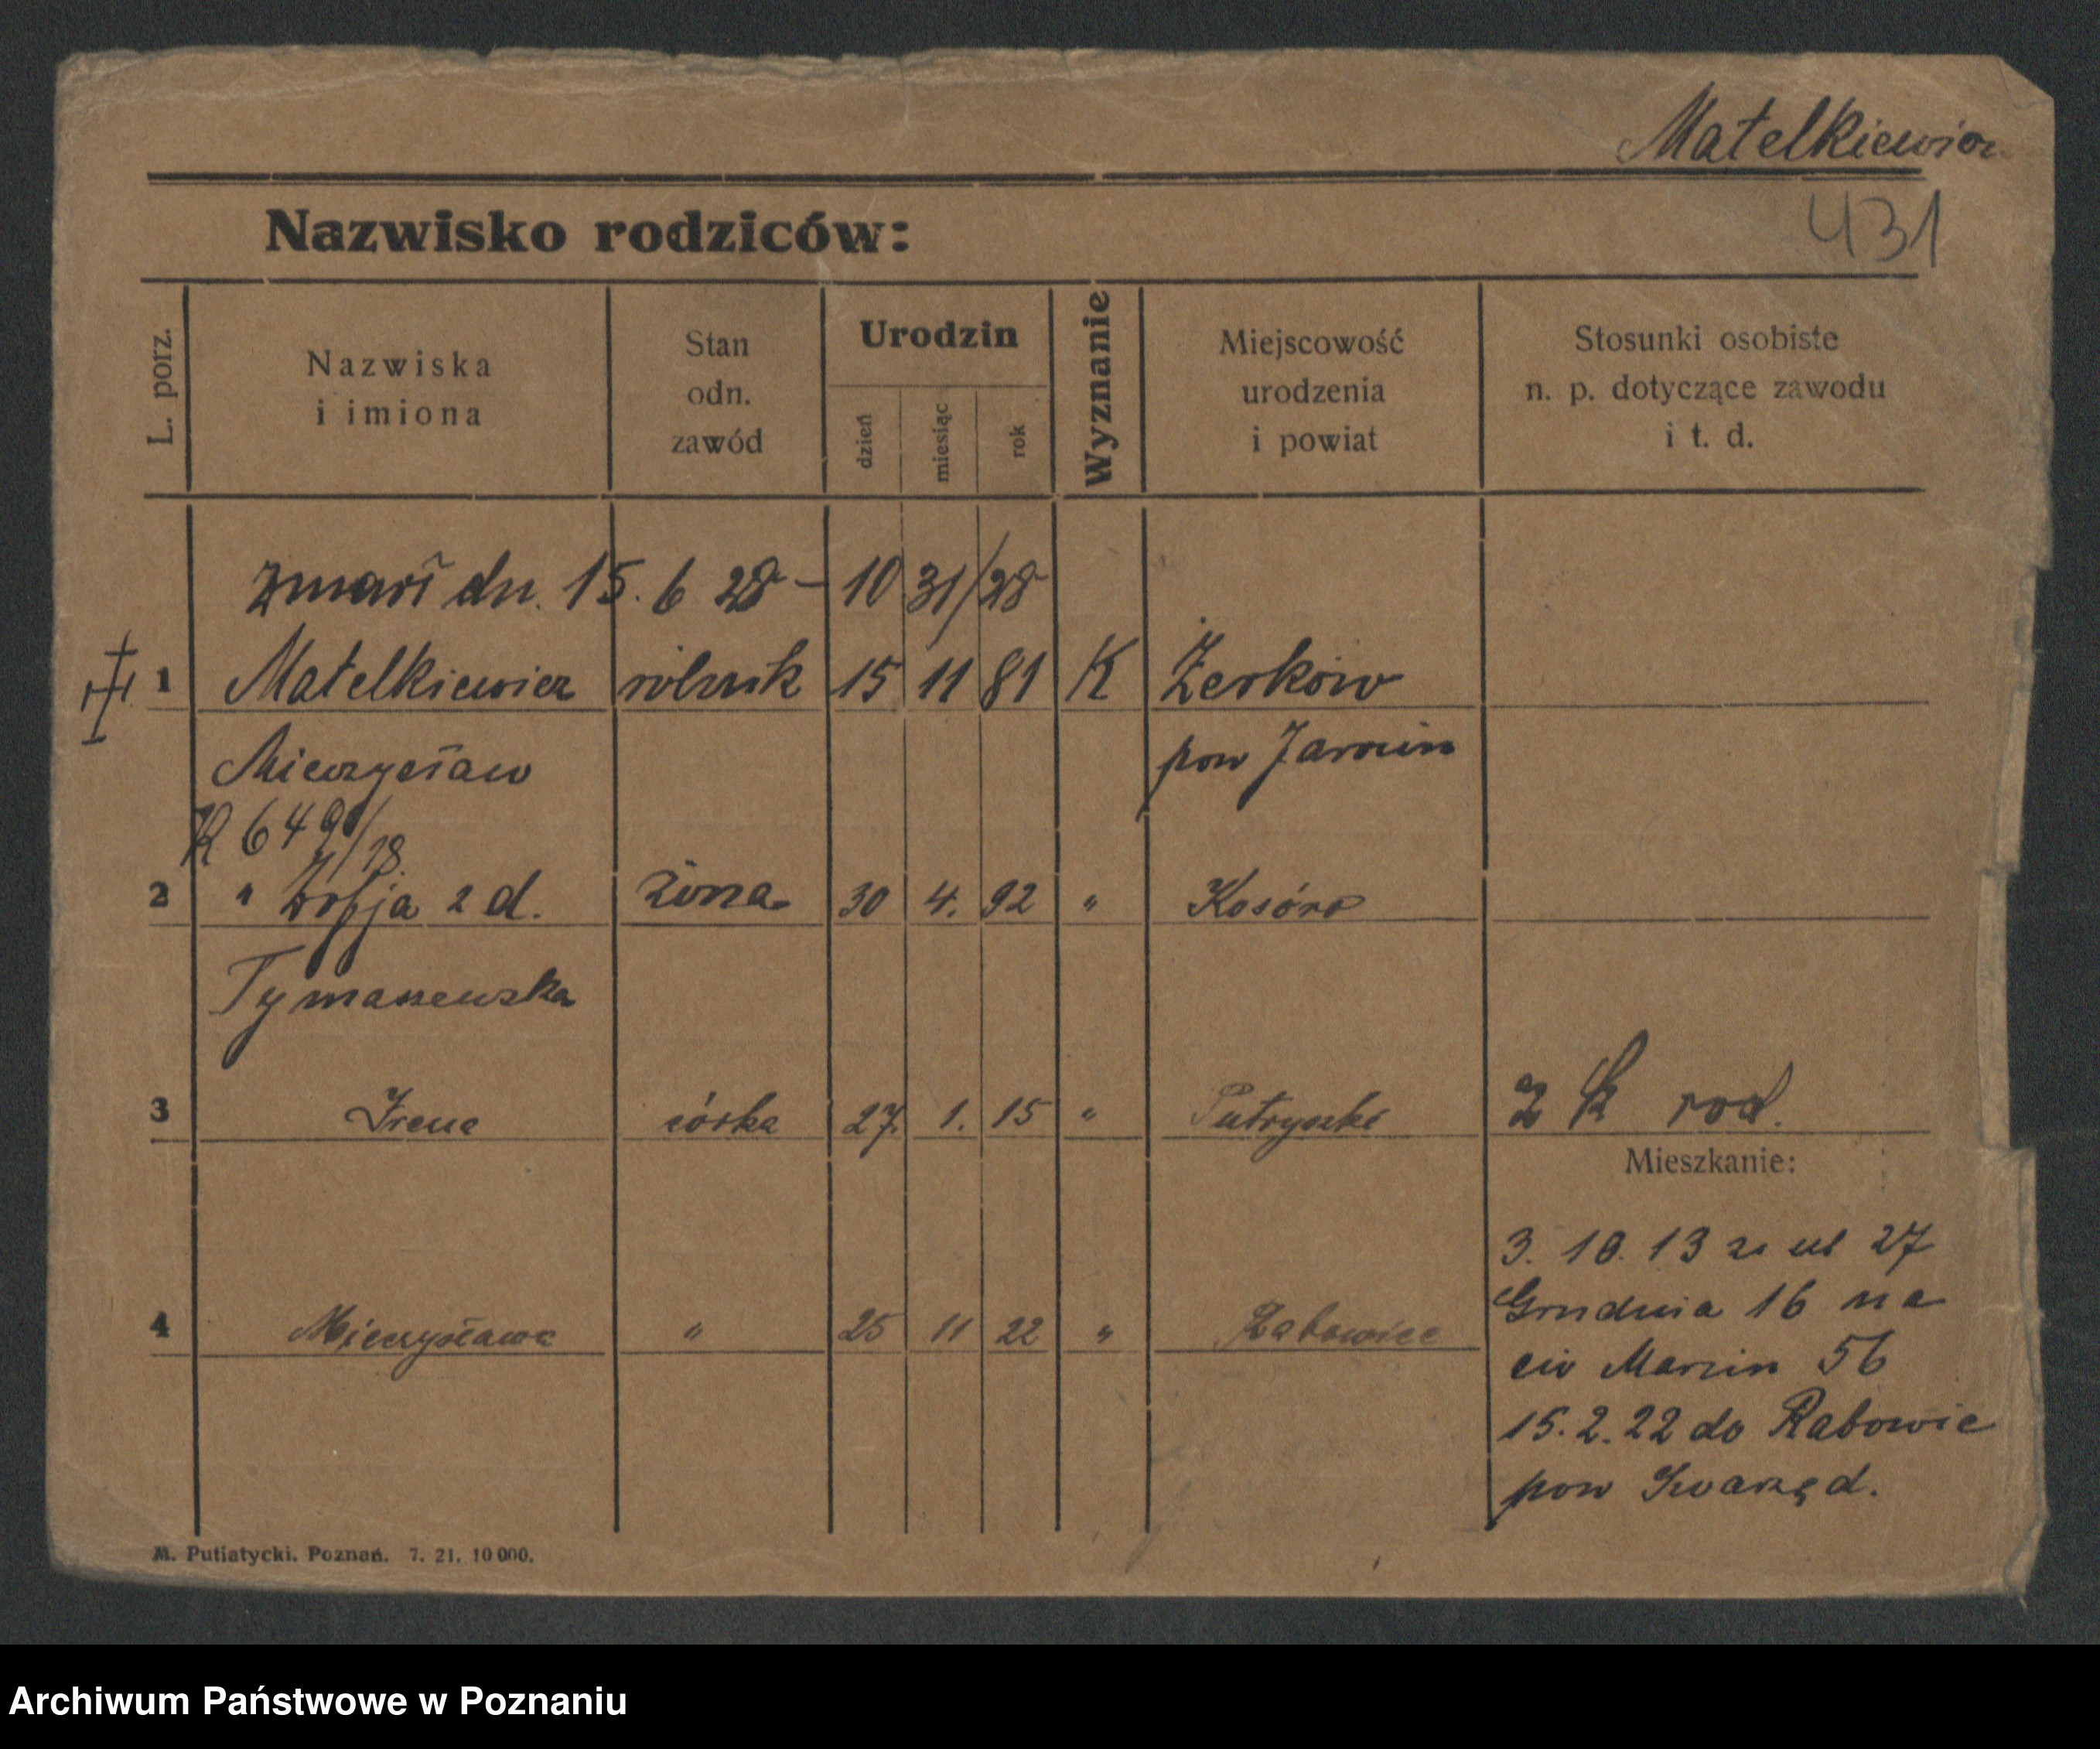 Matelkiewicz
431
Nazwisko rodziców:
L. porz.
Nazwiska
i imiona
Stan
odn.
zawód
Urodzin
dzień
miesiąc
rok
Wyznanie
Miejscowość
urodzenia
i powiat
Stosunki osobiste
n. p. dotyczące zawodu
i t. d.
zmarł dn. 15. 6 28 – 10 31/28
1 Matelkiewicz rolnik 15 11 81 K Żerków
Mieczysław pow Jarocin
R 649/18
2 " Zofja 2 d. żona 30 4. 92 "
Tymaszewska
3 Irena córka 27. 1. 15 " 2 K rod.
Mieszkanie:
3. 10. 13 27
4 Mieczysława " 25 11 22 " Rabowice
Grudnia 16 na
Marcin 56
15. 2. 22 do Rabowic
pow Swarzęd.
M. Putiatycki. Poznań. 7. 21. 10 000.
Archiwum Państwowe w Poznaniu